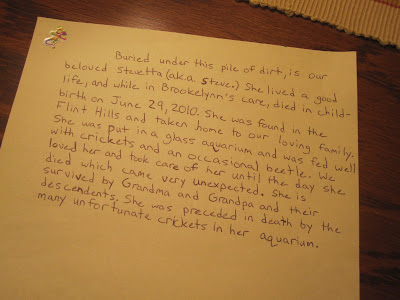 Buried under this pile of dirt, is our
beloved Stevetta (a.k.a. Steve.) She lived a good
life, and while in Brookelynn's care, died in child-
birth on June 29, 2010. She was found in the
Flint Hills and taken home to our loving family.
She was put in a glass aquarium and was fed well
with crickets and an occasional beetle. We
loved her and took care of her until the day she
died which came very unexpected. She is
survived by Grandma and Grandpa and their
descendents. She was preceded in death by the
many unfortunate crickets in her aquarium.